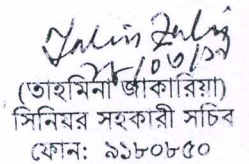 (তাহমিনা জাকারিয়া)
সিনিয়র সহকারী সচিব
ফোন: ৯১৮০৮৫০